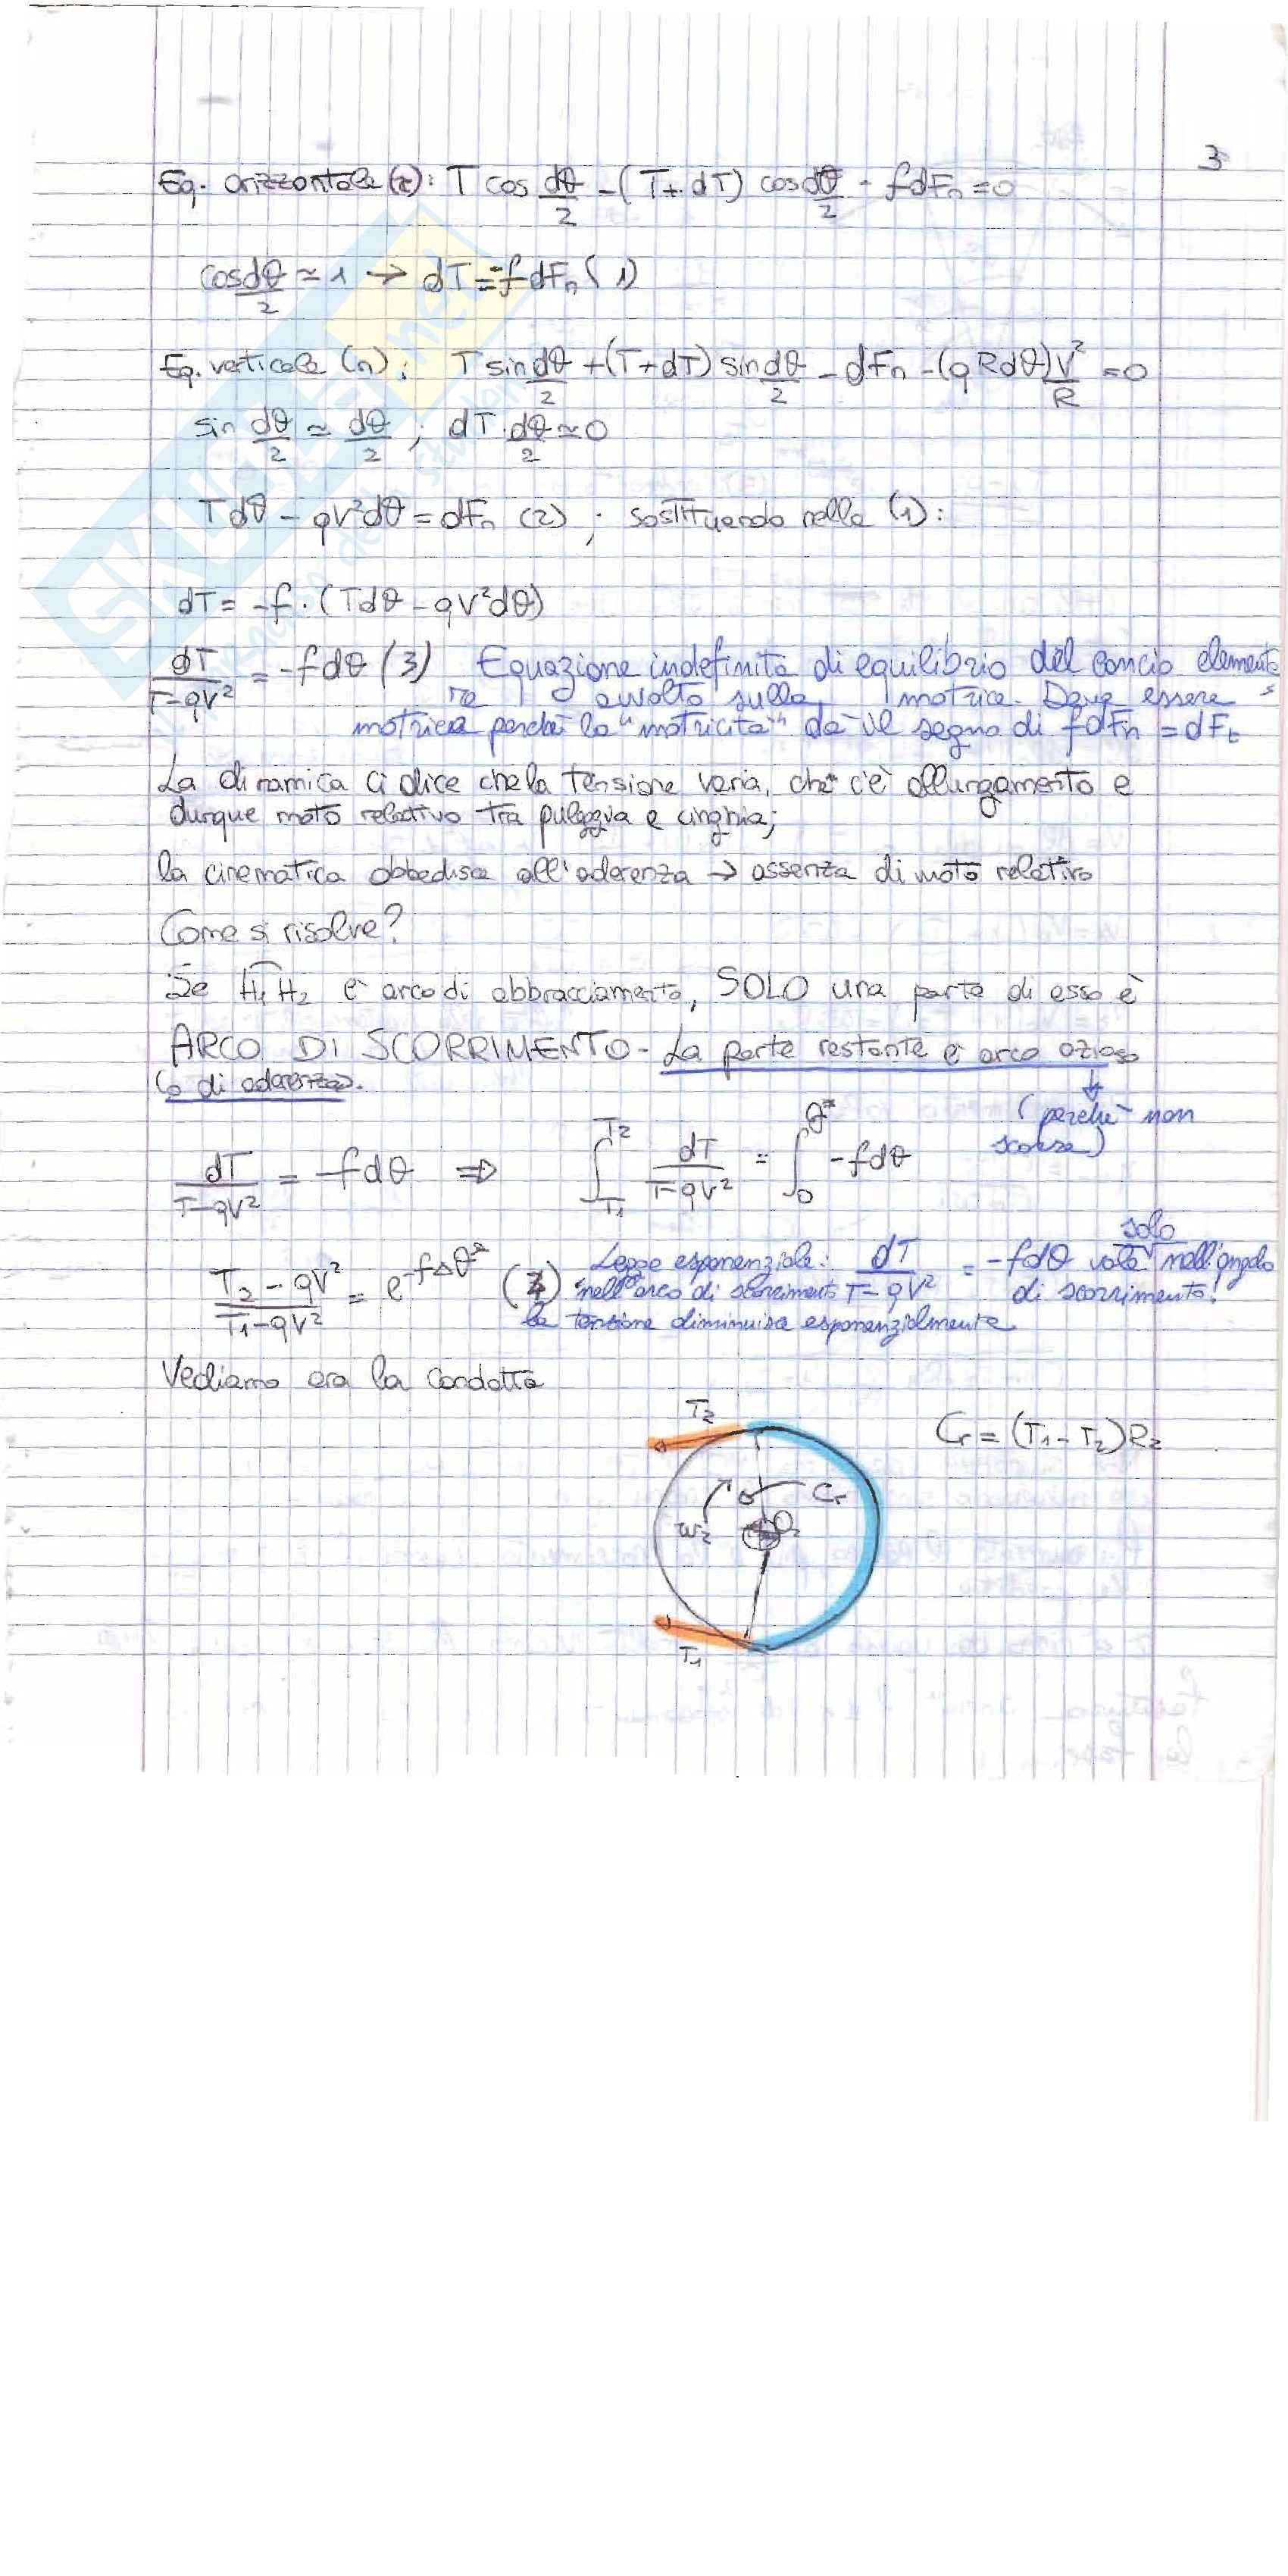 3
Eq. orizzontale (t): T cos dθ/2 - (T+dT) cos dθ/2 - fdFn = 0
cos dθ/2 ≃ 1 → dT = -fdFn (1)
Eq. verticale (n): T sin dθ/2 + (T+dT) sin dθ/2 - dFn - (qRdθ) V²/R = 0
sin dθ/2 ≃ dθ/2 ; dT dθ/2 ≃ 0
Tdθ - qV²dθ = dFn (2) ; sostituendo nella (1):
dT = -f · (Tdθ - qV²dθ)
dT/(T-qV²) = -fdθ (3) Equazione indefinita di equilibrio del concio elementa
re avvolto sulla motrice. Deve essere
motrice perché la "motricità" dà il segno di fdFn = dFt
La dinamica ci dice che la tensione varia, che c'è allungamento e
dunque moto relativo tra puleggia e cinghia;
la cinematica obbedisce all'aderenza → assenza di moto relativo
Come si risolve?
Se H1H2 è arco di abbracciamento, SOLO una parte di esso è
ARCO DI SCORRIMENTO - La parte restante è arco ozioso
(o di aderenza).
(perché non
scorre)
dT/(T-qV²) = -fdθ ⇒ ∫_T1^T2 dT/(T-qV²) = ∫_0^θ* -fdθ
(T2-qV²)/(T1-qV²) = e^-fΔθ* (4) Legge esponenziale:
nell'arco di scorrimento
la tensione diminuisce esponenzialmente
dT/(T-qV²) = -fdθ vale solo nell'angolo
di scorrimento!
Vediamo ora la condotta
T2
Cr = (T1-T2)R2
Cr
ω2
O2
T1
SKUOLA.net